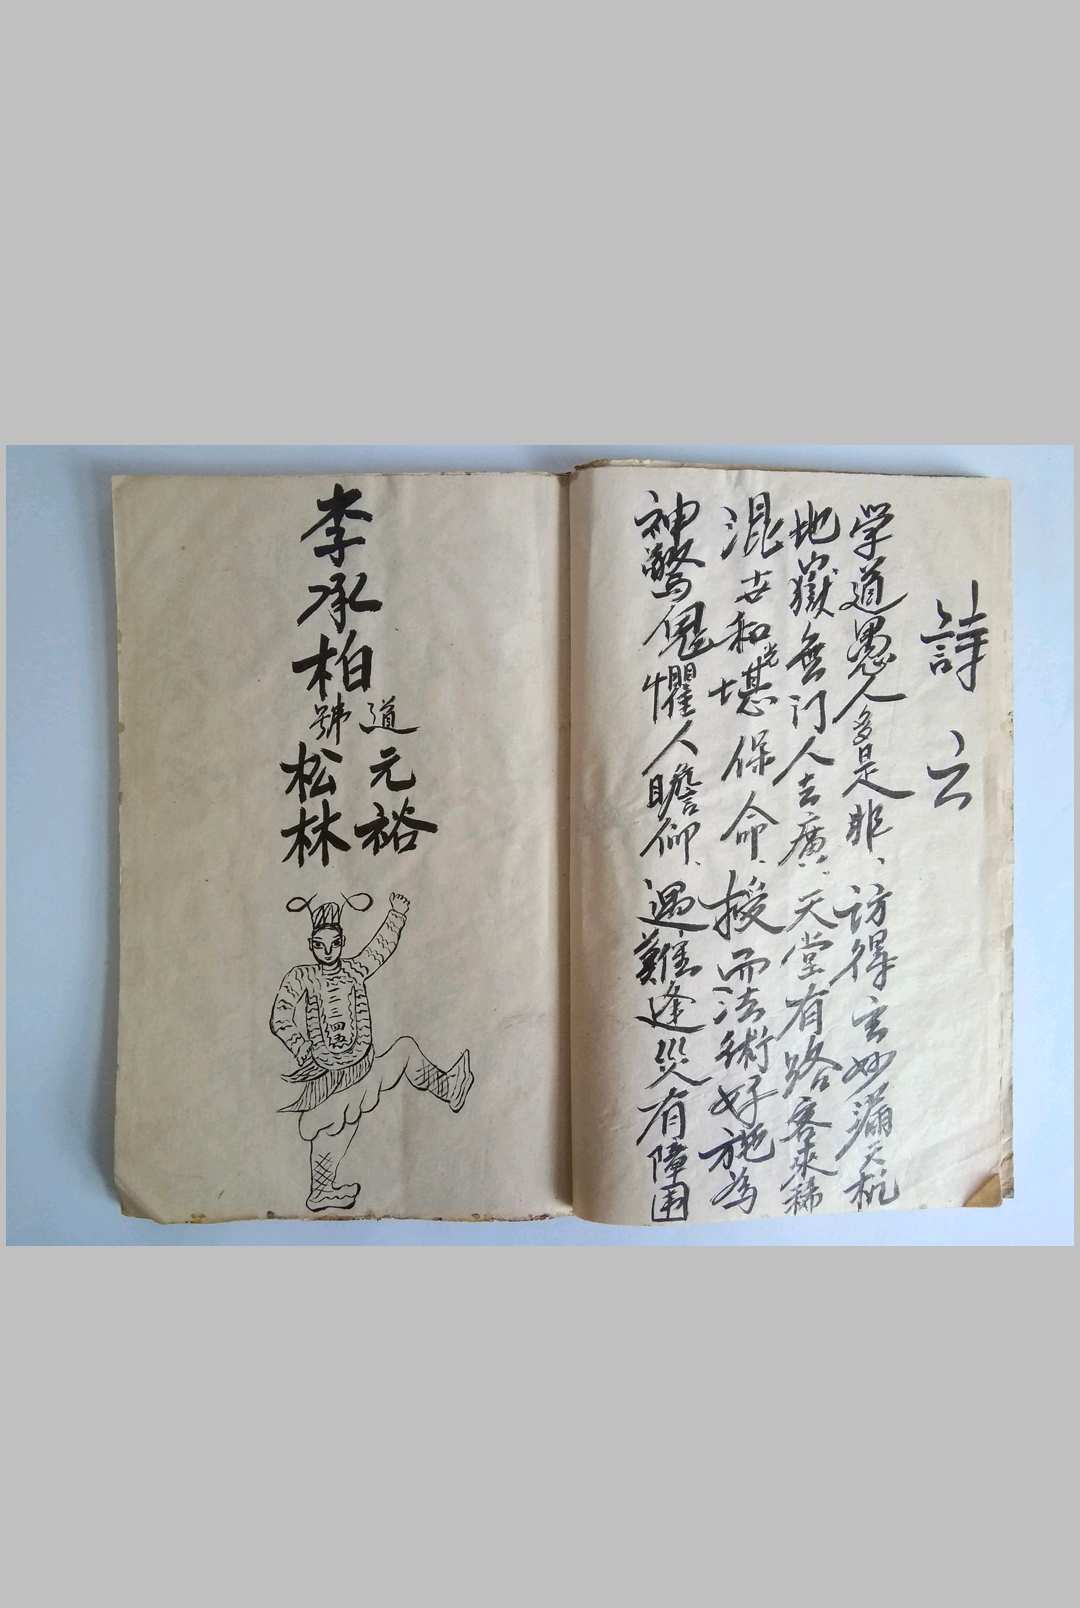 詩云
学道愚人多是非、访得玄妙漏天机
地獄無门人去廣、天堂有路客来稀
混世和光堪保命、授而法術好施為
神驚鬼懼人瞻仰、遇難逢災有障囲
李承柏
道元裕
號松林
三四五